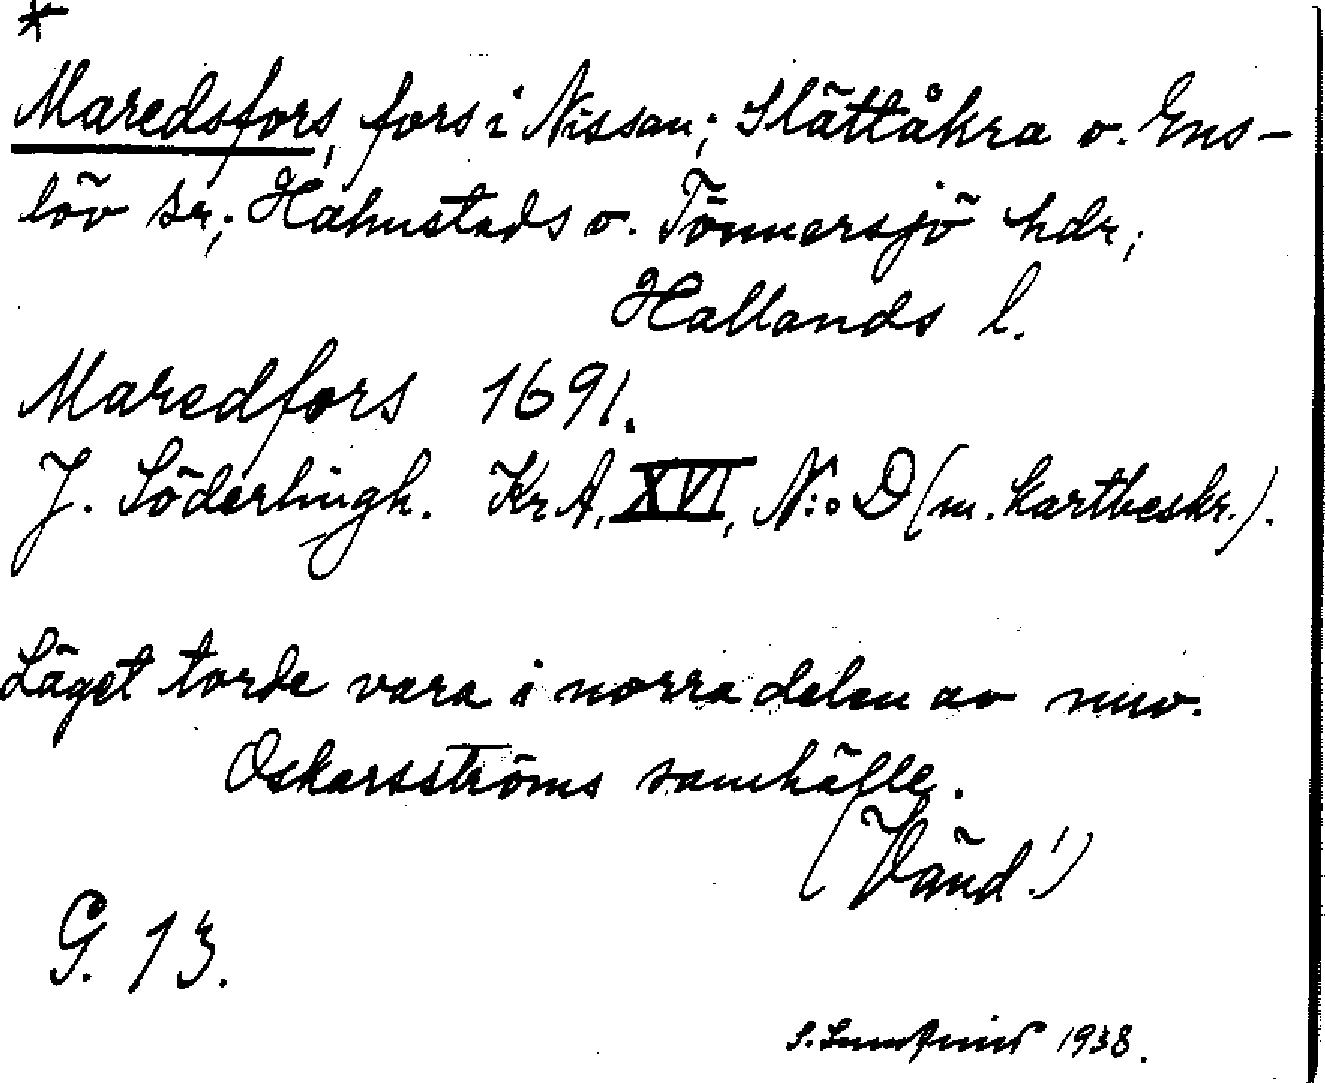 *
Maredsfors, fors i Nissan; Slättåkra o. Ens-
löv sr; Halmstads o. Tönnersjö hdr;
Hallands l.
Maredfors 1691.
J. Söderlingh. KrA, XVI, N:o D (m. kartbeskr.).
Läget torde vara i norra delen av nuv.
Oskarsströms samhälle.
(Vänd!)
G. 13.
S. 1938.